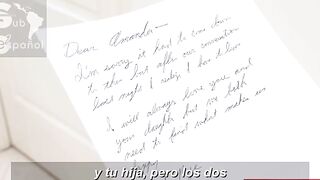 Sub
español
Dear Amanda—
I'm sorry it had to come down
to this but after our conversation
last night I realize I have to leave
I will always love you and
your daughter but we both
need to find what makes us
y tu hija, pero los dos